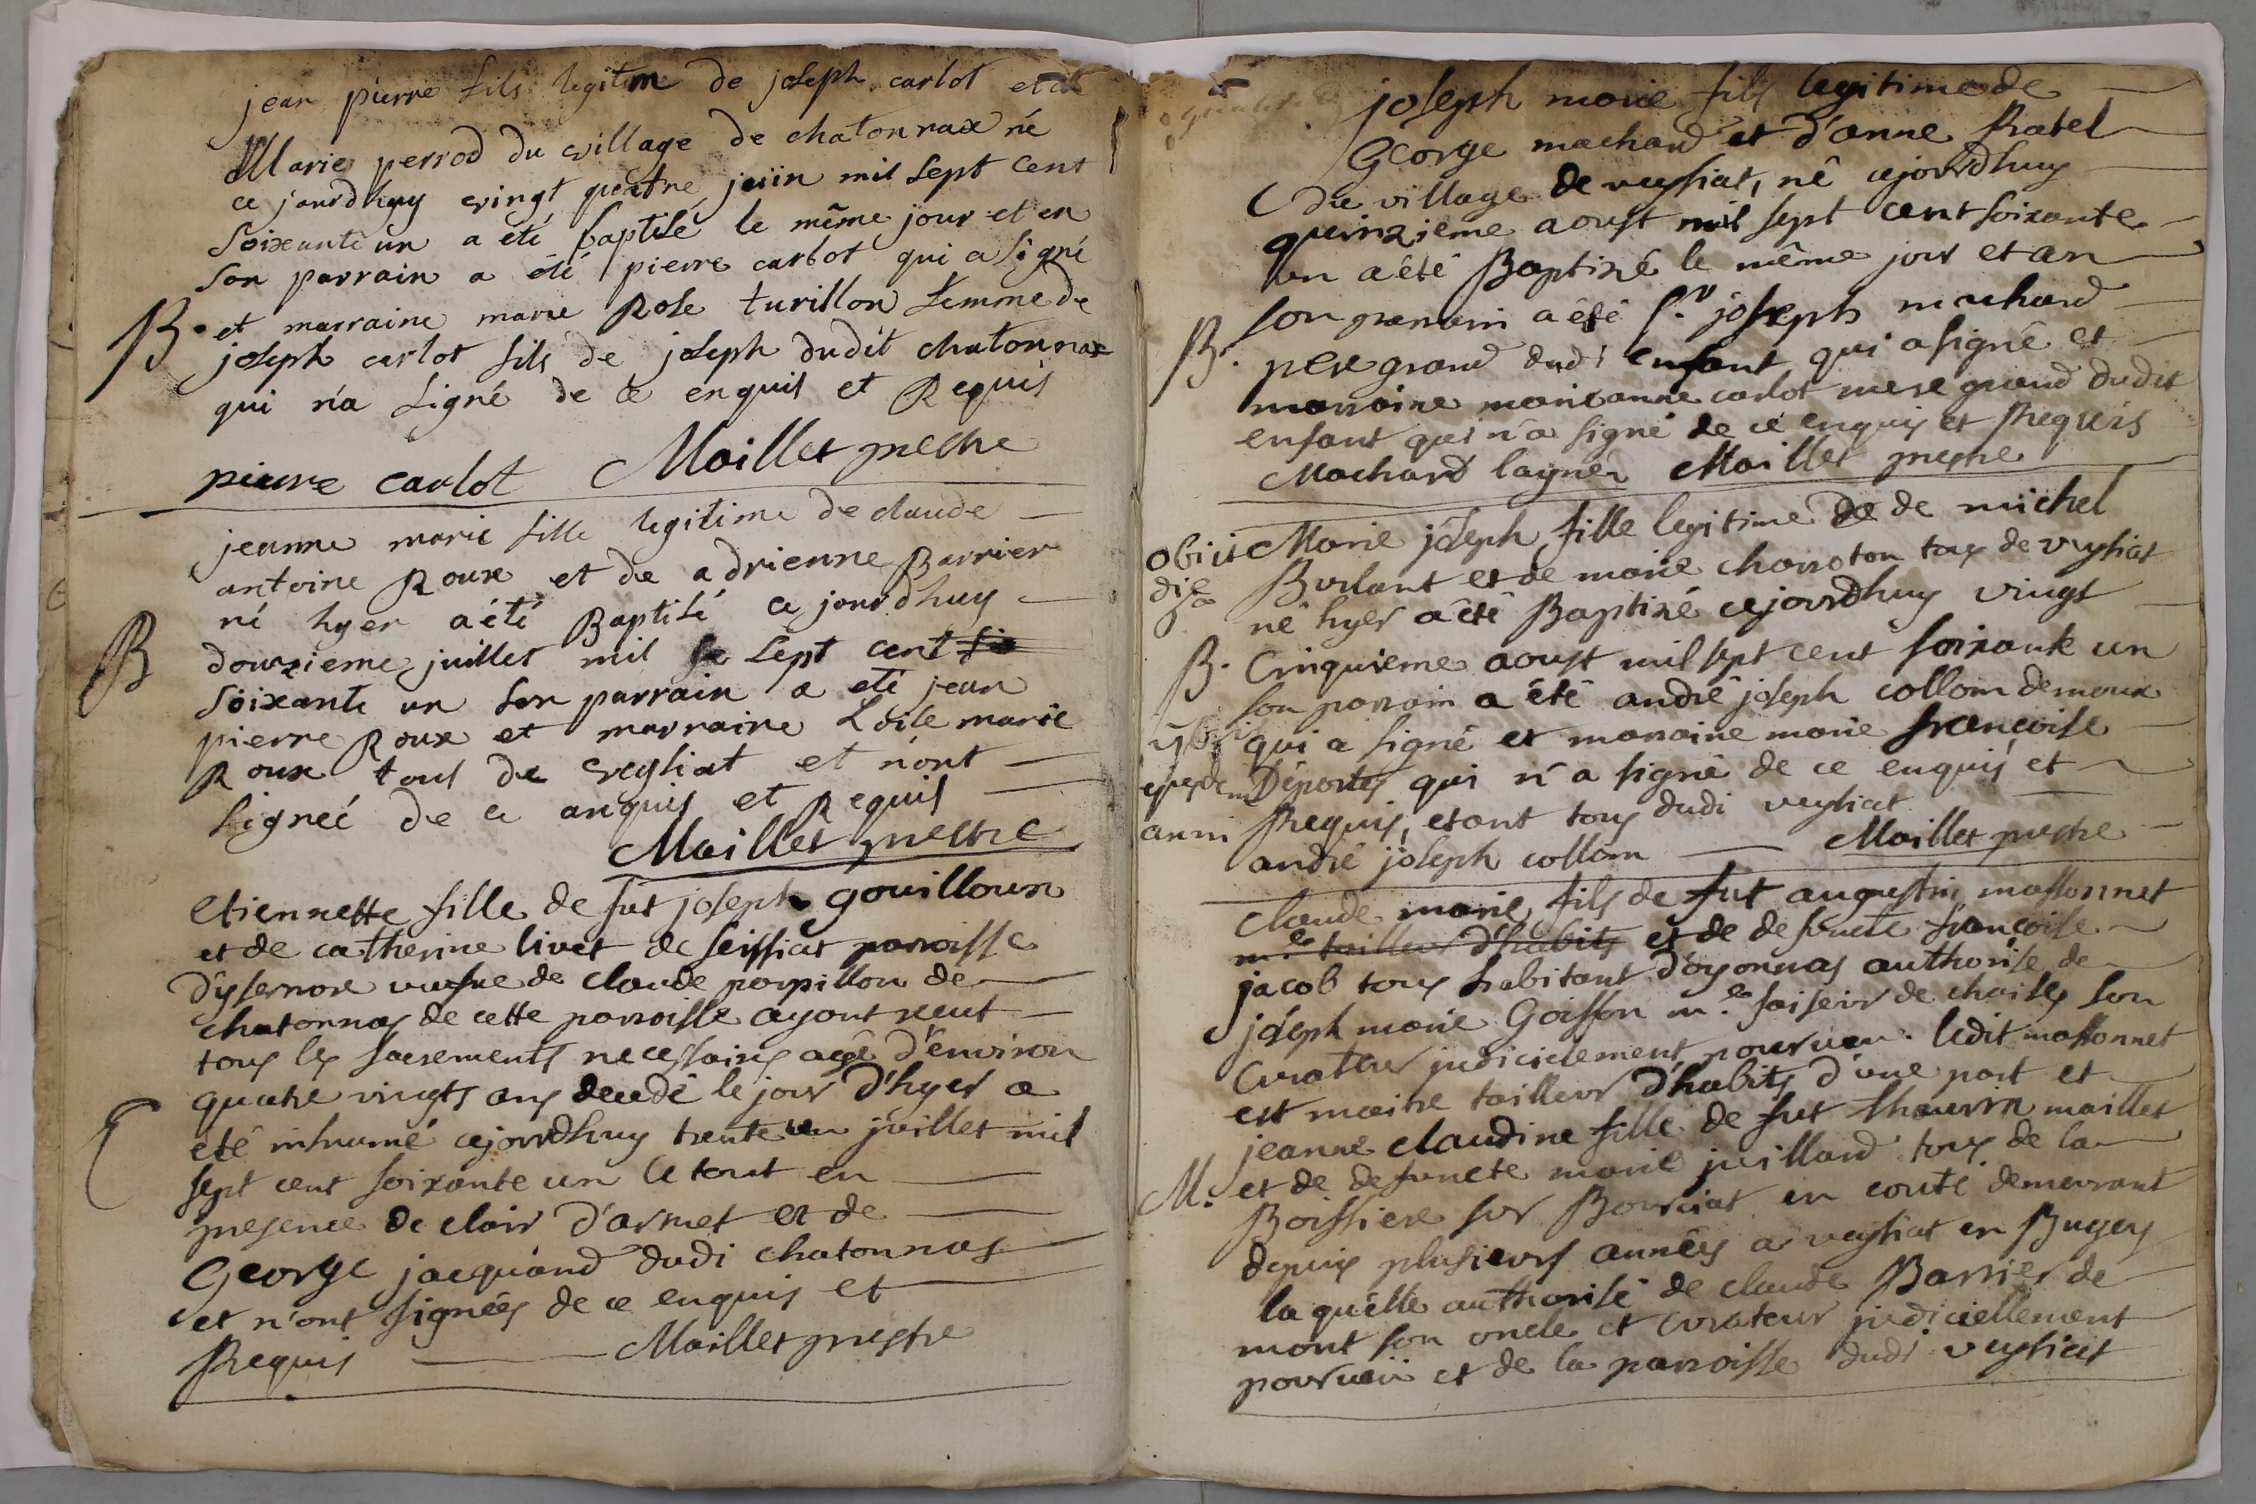 jean pierre fils legitme de joseph carlot et de
Marie perrod du village de chatonnax né
ce jourdhuy vingt quatre juin mil sept cent
soixante un a été baptisé le même jour et en
son parrain a été pierre carlot qui a signé
B. et marraine marie Rose turillon femme de
joseph carlot fils de joseph dudit chatonnax
qui n'a signé de ce enquis et Requis
pierre carlot Maillet prestre
jeanne marie fille legitime de claude
antoine Roux et de adrienne Barrier
né hyer a été Baptisé ce jourdhuy
B douzieme juillet mil se sept cent six
soixante un son parrain a eté jean
pierre Roux et marraine Loise marie
Roux tous de veysiat et n'ont
signeé de ce anquis et Requis
Maillet prestre
etiennette fille de fut joseph gouilloux
et de catherine livet de seissiat parroisse
d'ysernore veufve de claude parpillon de
chatonnas de cette parroisse ayant reçut
tous les sacrements necessaires agé d'environ
quatre vingts ans decedé le jour d'hyer a
été inhumé cejourdhuy trente un juillet mil
sept cent soixante un le tout en
presence de clair d'armet et de
George jacquand dudi chatonnas
et n'ont signées de ce enquis et
Requis Maillet prestre
joseph marie fils legitime de
George machard et d'anne Ratel
du village de veysiat, né cejourdhuy
quinzieme aoust mil sept cent soixante
un a été Baptizé le même jour et an
son parrain a été sr joseph machard
B. pere grand dudi enfant qui a signé et
marraine marieanne carlot mere grand dudit
enfant qui n'a signé de ce enquis et Requis
Machard layner Maillet prestre
obiit Marie joseph fille legitime de de michel
Burlant et de marie charroton tous de veysiat
né hyer a été Baptizé cejourdhuy vingt
B. Cinquieme aoust mil sept cent soixante un
son parrain a été andré joseph collom demoux
qui a signé et marraine marie francoise
ejusdem Déportes qui n'a signé de ce enquis et
anni Requis, etant tous dudi veysiat
andré joseph collom Maillet prestre
Claude marie fils de fut augustin massonnet
me tailleur d'habits et de defuncte francoise
jacob tous habitant d'oyonnas authorise de
joseph marie Goiffon me faiseur de chaises son
Curateur judicielement pourveu. ledit massonnet
est maitre tailleur d'habits d'une part et
jeanne claudine fille de fut thaurin maillet
M. et de defuncte marie juillard tous de la
Boissiere sur Bourciat en conté demeurant
depuis plusieurs années a veysiat en Bugey
laquelle authorisé de claude Barrier de
mont son oncle et Curateur judiciellement
pourveü et de la parroisse dudi veysiat